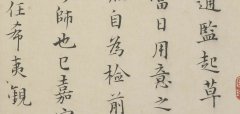 通監起草
當日用意之
然自為檢前
師也已嘉
任希夷觀